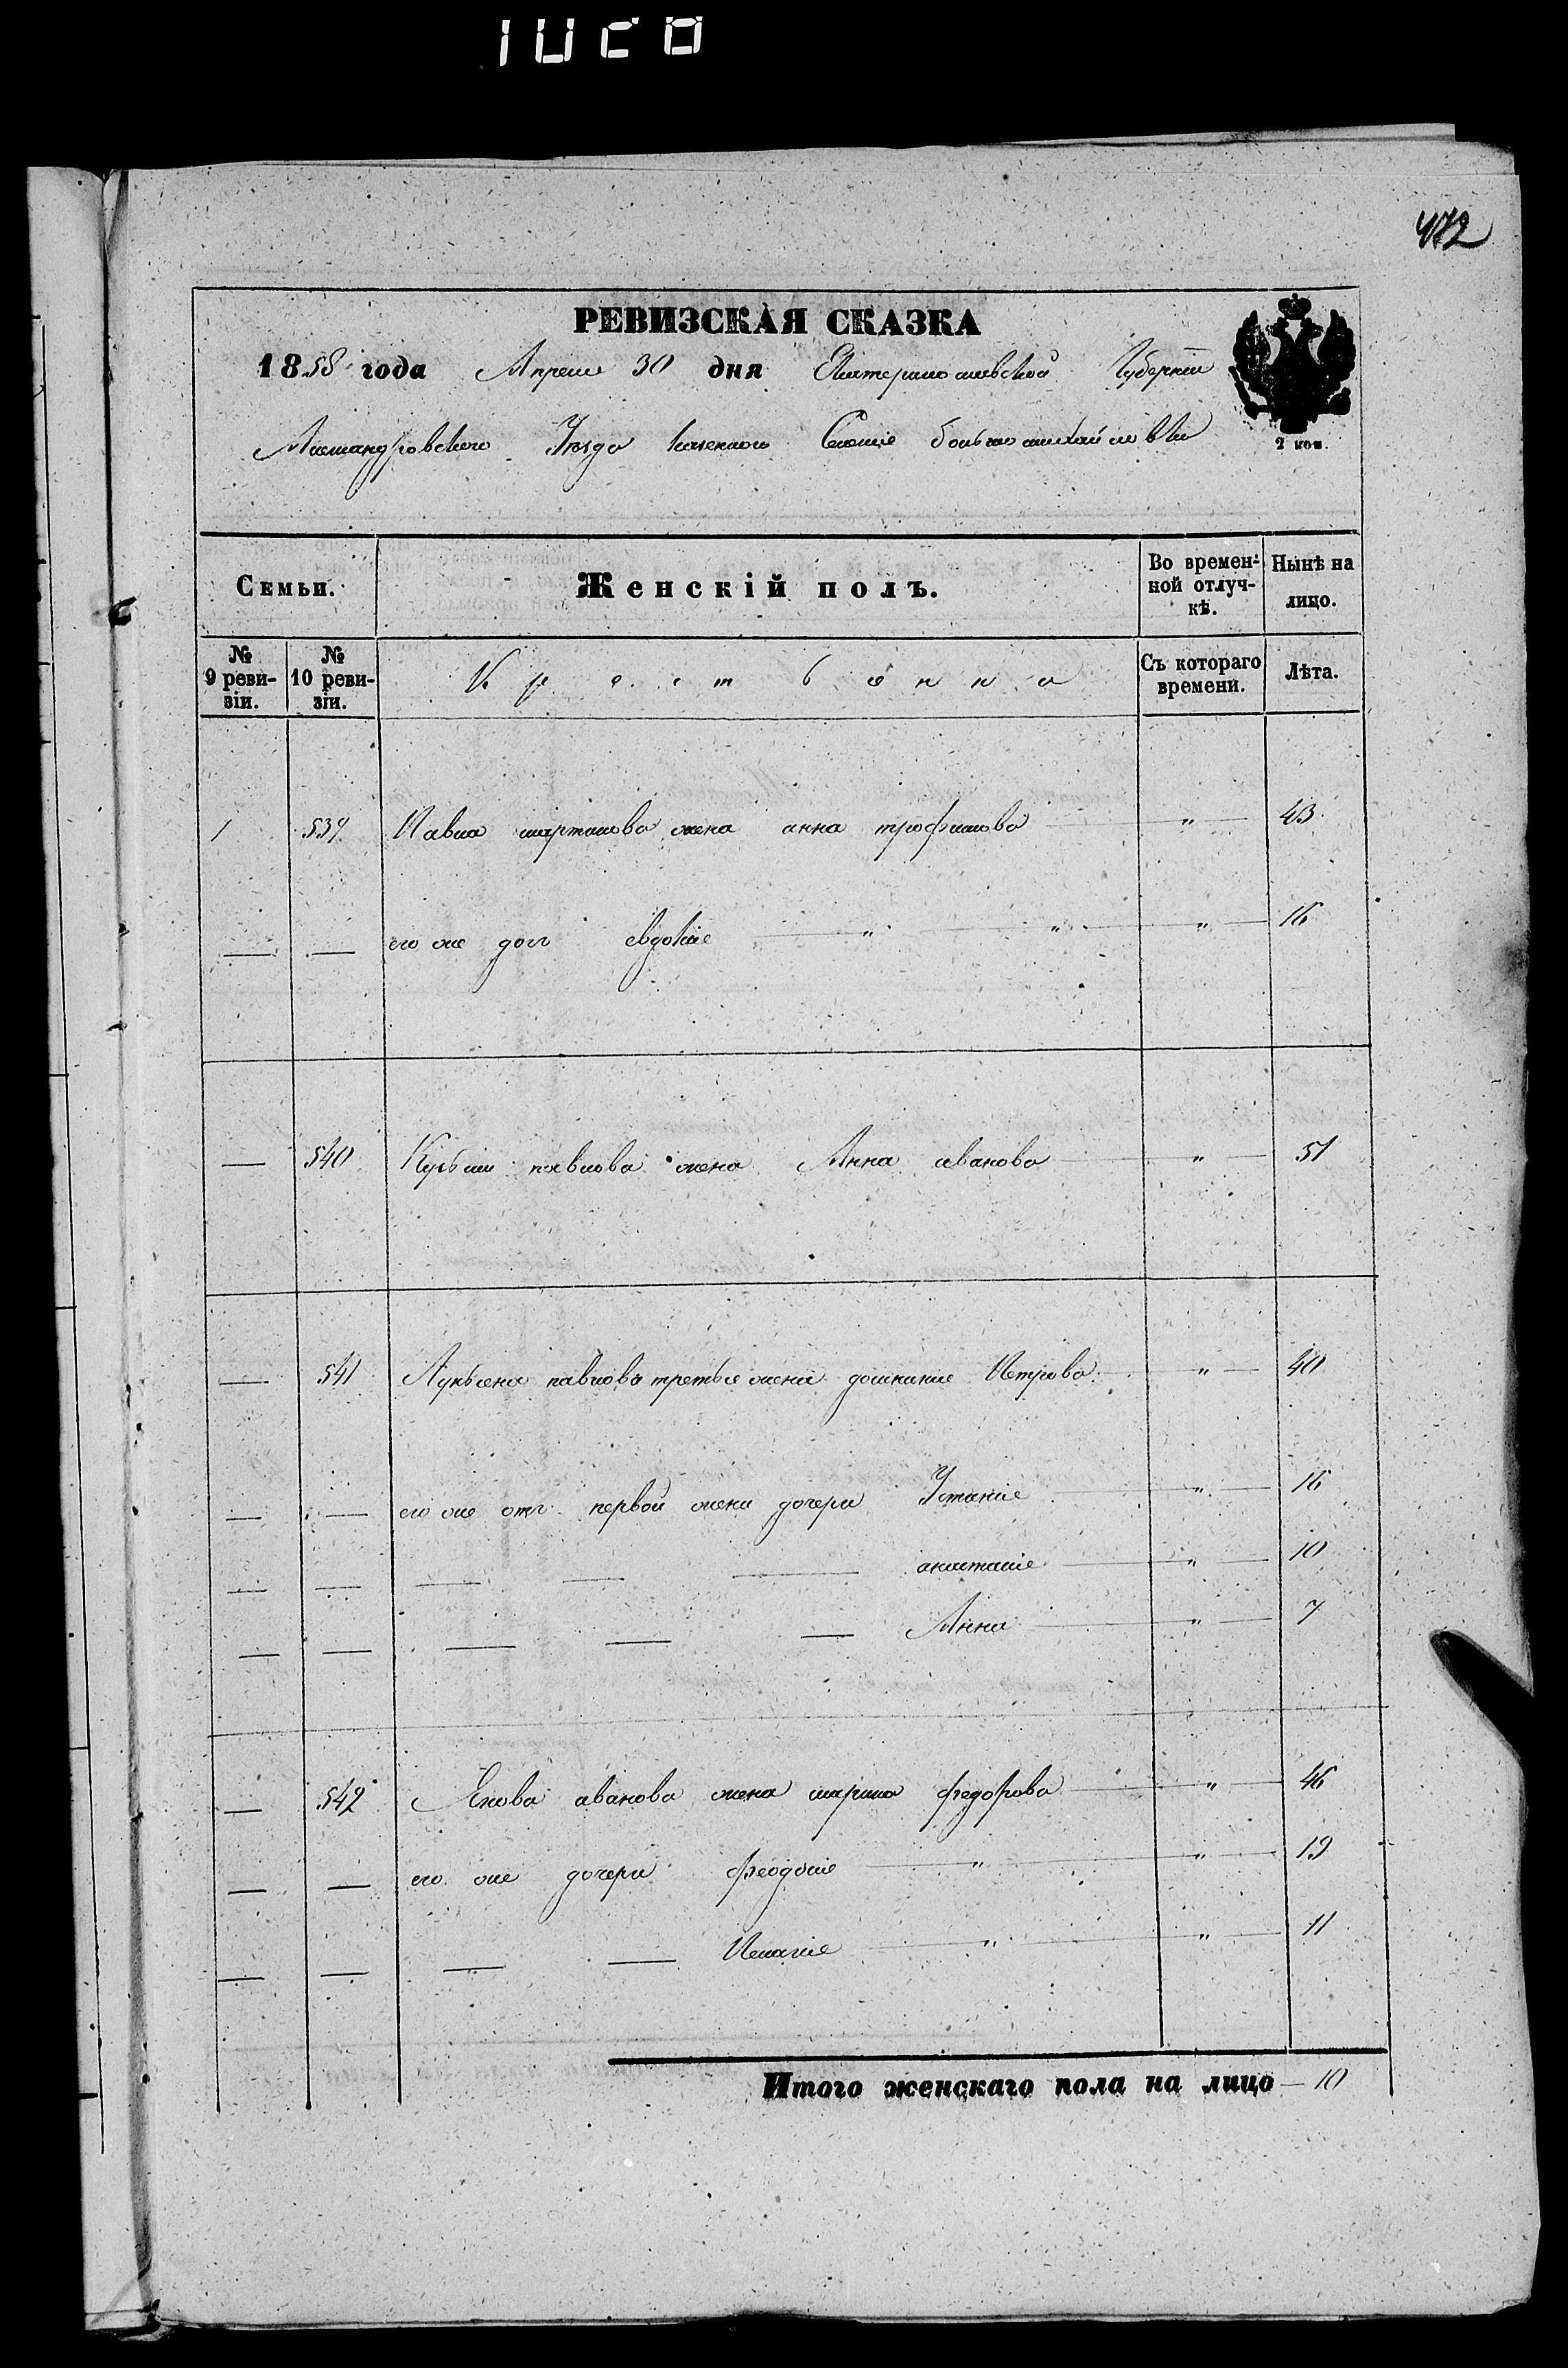 472
РЕВИЗСКАЯ СКАЗКА
1858 года Апреля 30 дня Екатеринославской Губернии
Александровского Уезда Казенного Селение большомихайловки
2 коп.
Семьи.
Женскій полъ.
Во временной отлучкѣ.
Нынѣ на лицо.
№ 9 ревизіи.
№ 10 ревизіи.
Крестьянка
Съ котораго времени.
Лѣта.
1 539 Павла мартинова жена анна трофимова " 43
— — его же доч евдокие " " " 16
— 540 Кузьми павлова жена Анна иванова " 51
— 541 Лукьена павлова третье жена домникие Петрова " 40
— — его же отъ первой жени дочери Устиние " 16
— — — — — анастасие " 10
— — — — — Анна " 7
— 542 Якова иванова жена марина федорова " 46
— — его же дочери феодосие " " 19
— — — — Пелагие " " 11
Итого женскаго пола на лицо — 10